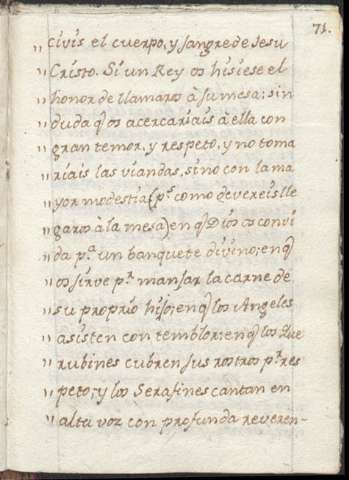 71.
" civis el cuerpo, y sangre de Jesu
" Cristo. Si un Rey os hisiese el
" honor de llamaros à su mesa; sin
" duda q̃ os acercariais à ella con
" gran temor, y respeto, y no toma
" riais las viandas, sino con la ma
" yor modestia (pˢ como devereis lle
" garos à la mesa) en q̃ Dios os convi
" da pᵃ un banquete divino; en q̃
" os sirve pʳ manjar la carne de
" su proprio hijo; en q̃ los Angeles
" asisten con temblor; en q̃ los Que
" rubines cubren sus rostros pʳ res
" peto; y los Serafines cantan en
" alta voz con profunda reveren-